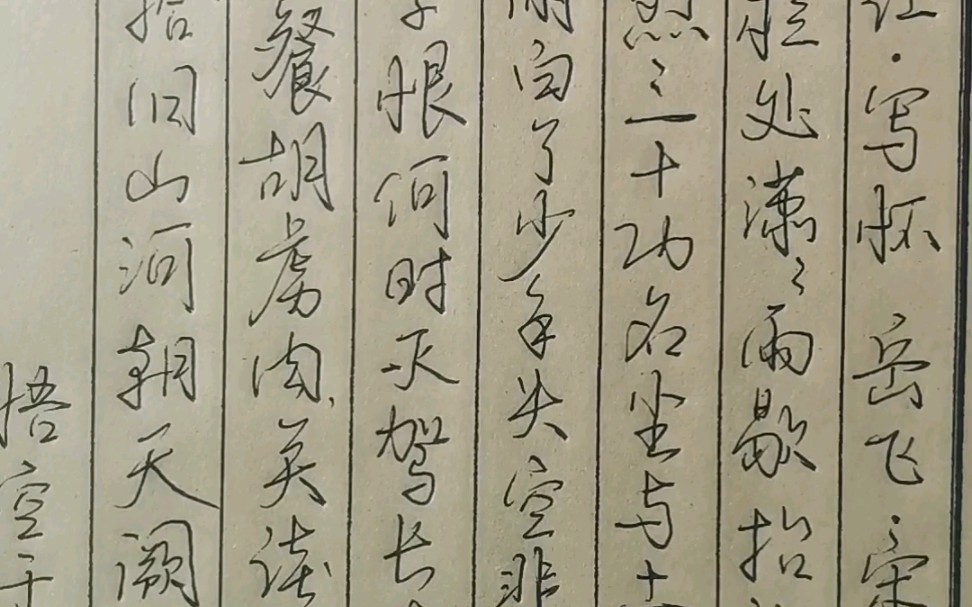 江·写怀 岳飞·宋
栏处潇潇雨歇抬
烈三十功名尘与土
白了少年头空悲
恨何时灭驾长
餐胡虏肉笑谈
拾旧山河朝天阙
悟空